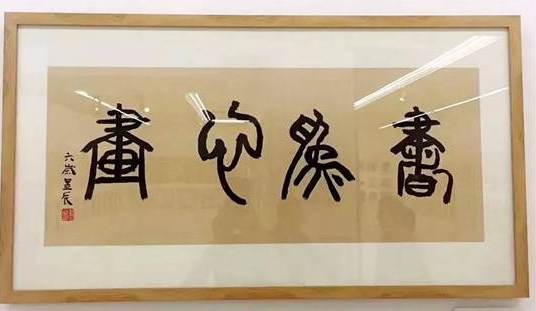 書為心畫
六歲星辰